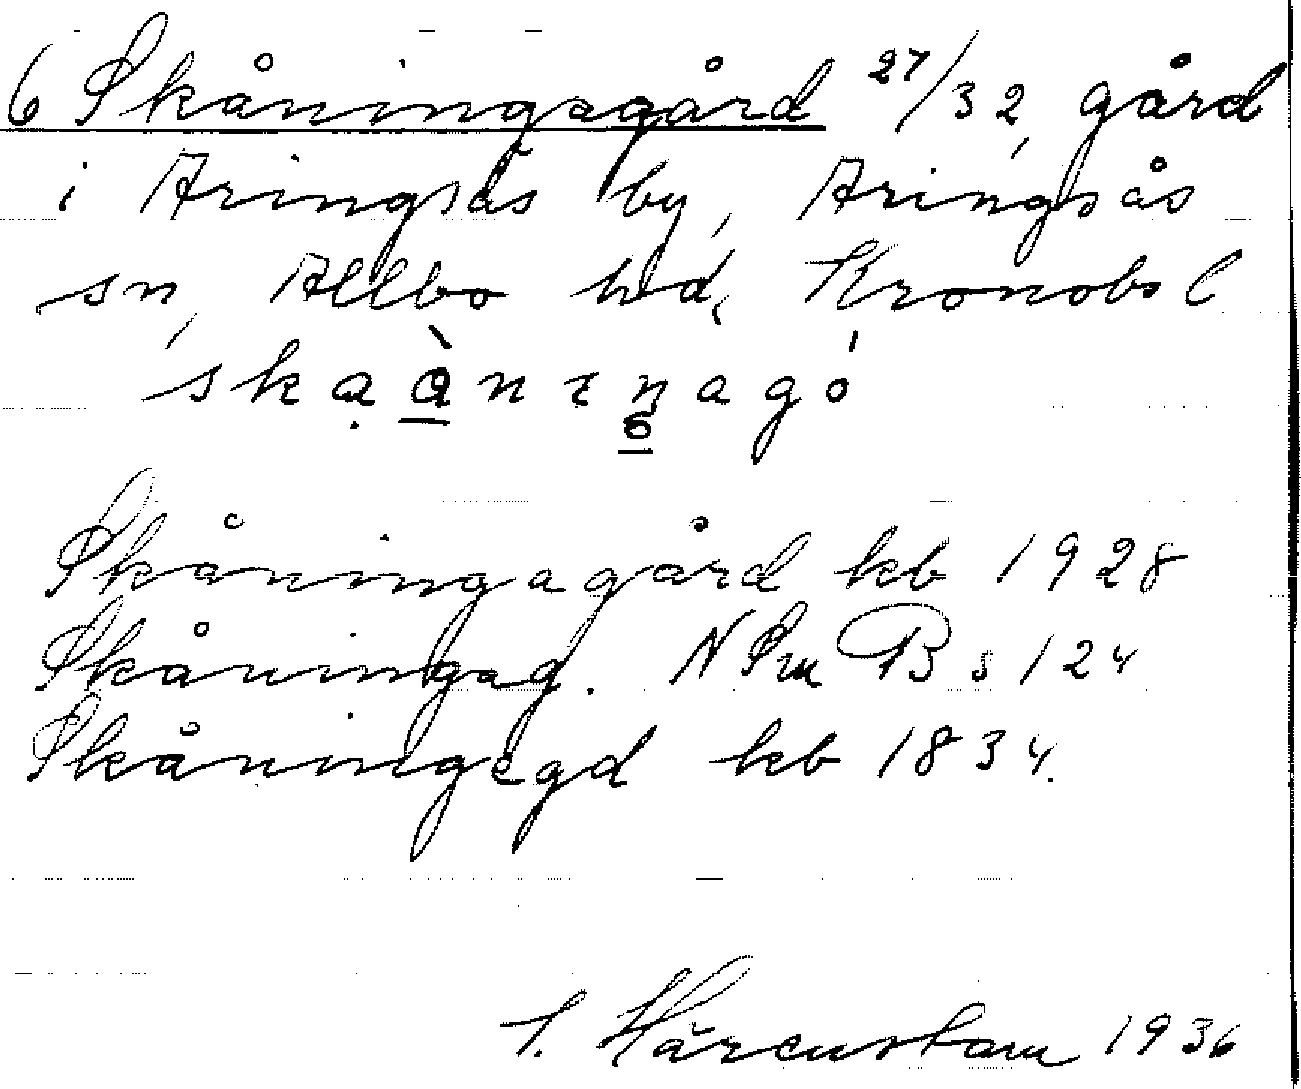 6 Skåningagård 27/32, gård
i Aringsås by, Aringsås
sn, Allbo hd, Kronobs l
Skåningagård kb 1928
Skåningag. NSmB s 124
Skåningegd kb 1834.
1936